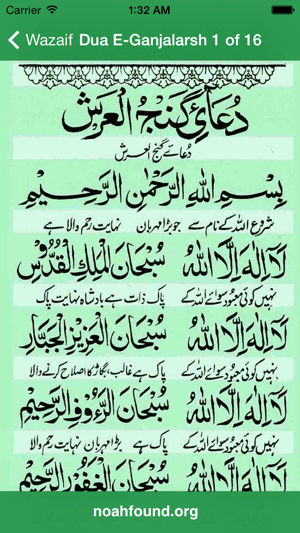 Carrier 1:32 AM
Wazaif Dua E-Ganjalarsh 1 of 16
دُعَائے گَنجُ الْعَرش
دُعائے گنج العرش
بِسْمِ اللهِ الرَّحْمٰنِ الرَّحِيْمِ
شروع اللہ کے نام سے جو بڑا مہربان نہایت رحم والا ہے
لَآ اِلٰهَ اِلَّا اللهُ سُبْحَانَ الْمَلِكِ الْقُدُّوْسِ
نہیں کوئی معبود سوائے اللہ کے پاک ذات ہے بادشاہ نہایت پاک
لَآ اِلٰهَ اِلَّا اللهُ سُبْحَانَ الْعَزِيْزِ الْجَبَّارِ
نہیں کوئی معبود سوائے اللہ کے پاک ہے غالب، بگاڑ کا اصلاح کرنے والا
لَآ اِلٰهَ اِلَّا اللهُ سُبْحَانَ الرَّءُوْفِ الرَّحِيْمِ
نہیں کوئی معبود سوائے اللہ کے پاک ہے بڑا مہربان نہایت رحم والا
لَآ اِلٰهَ اِلَّا اللهُ سُبْحَانَ الْغَفُوْرِ الرَّحِيْمِ
noahfound.org